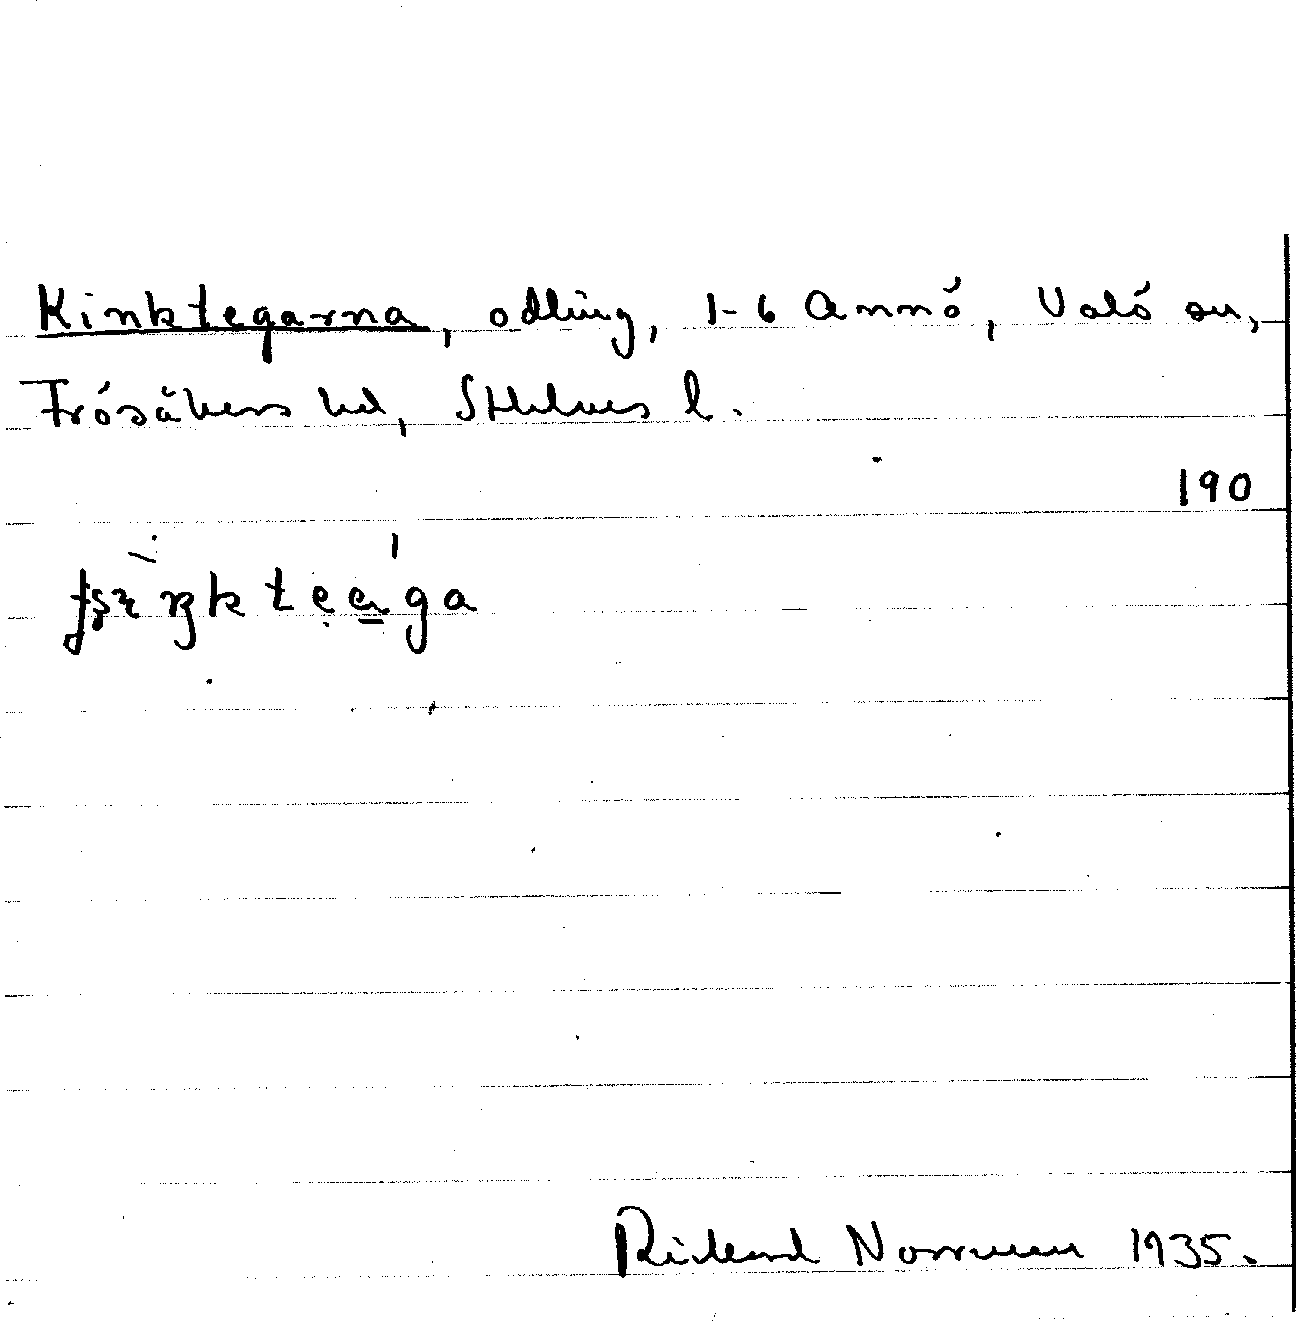 Kinktegarna, odling, 1-6 Annö, Valö sn,
Frösåkers hd, Sthlms l.
190
Rickard Norrman 1935.